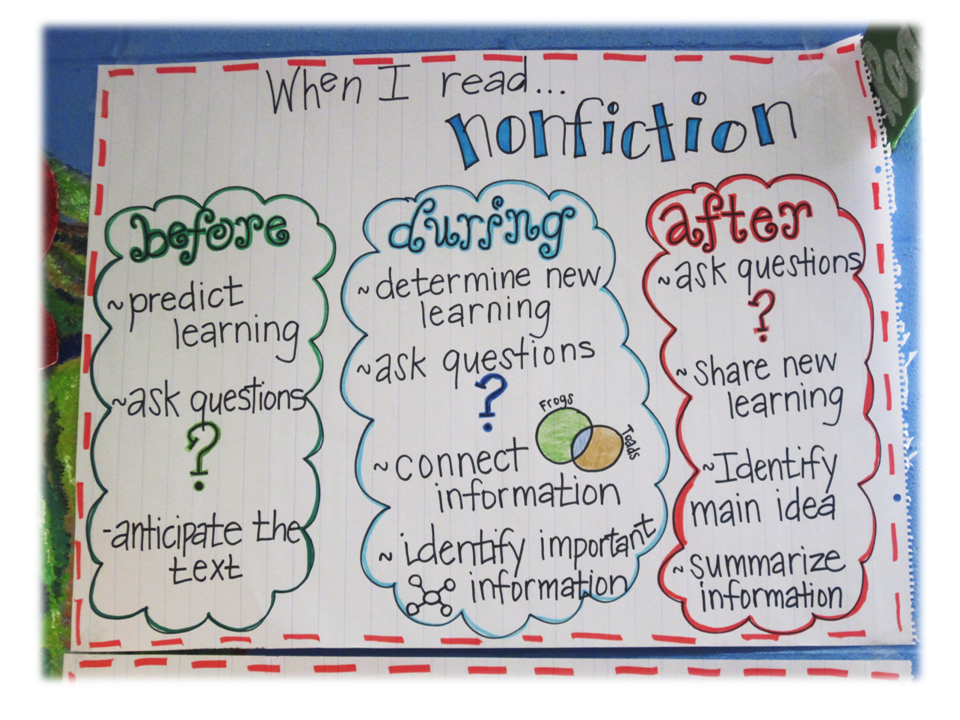 When I read...
nonfiction
before
~predict
learning
~ask questions
?
-anticipate the
text
during
~determine new
learning
~ask questions
?
~connect
information
Frogs
Toads
~identify important
information
after
~ask questions
?
~share new
learning
~Identify
main idea
~summarize
information